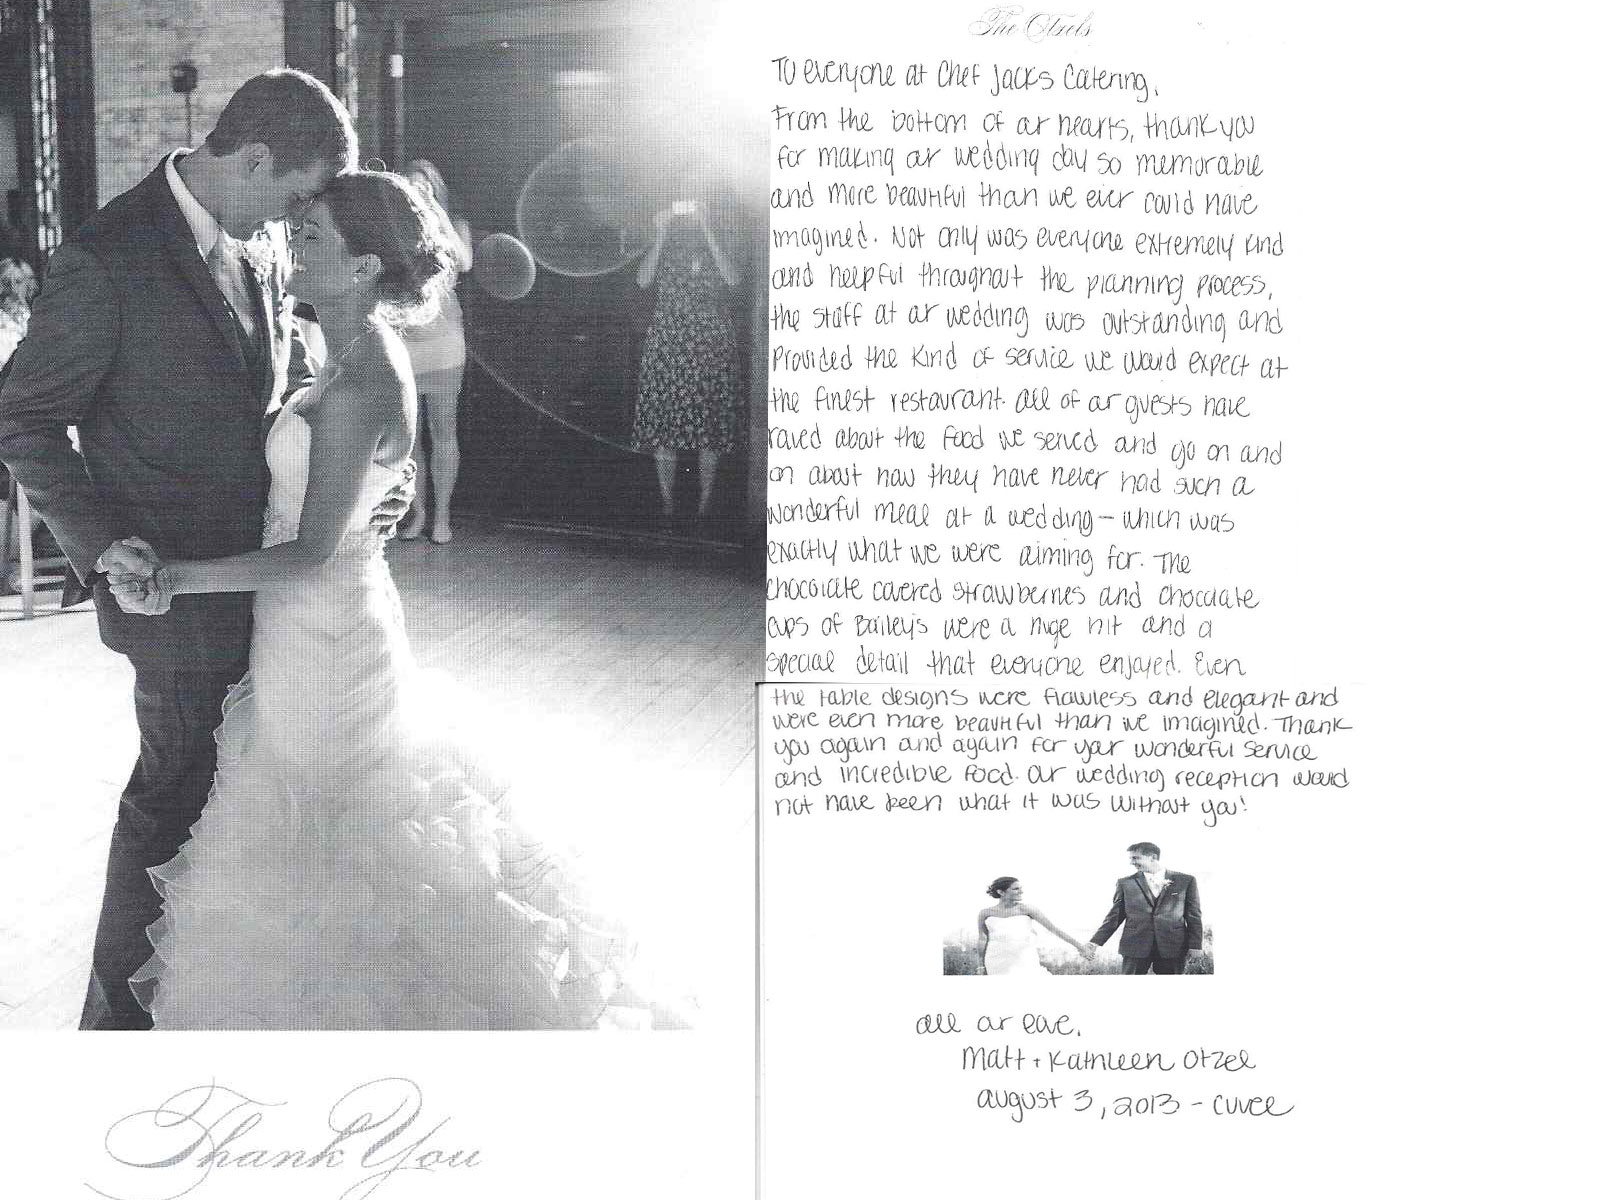 The Otzels
To everyone at Chef Jacks Catering,
From the bottom of our hearts, thank you
for making our wedding day so memorable
and more beautiful than we ever could have
imagined. Not only was everyone extremely kind
and helpful throughout the planning process,
the staff at our wedding was outstanding and
Provided the kind of service we would expect at
the finest restaurant. All of our guests have
raved about the food we served and go on and
on about how they have never had such a
wonderful meal at a wedding - which was
exactly what we were aiming for. The
chocolate covered strawberries and chocolate
cups of Bailey's were a huge hit and a
special detail that everyone enjoyed. Even
the table designs were flawless and elegant and
were even more beautiful than we imagined. Thank
you again and again for your wonderful service
and incredible food. Our wedding reception would
not have been what it was without you!
All our love,
Matt + Kathleen Otzel
August 3, 2013 - Cuvee
Thank You